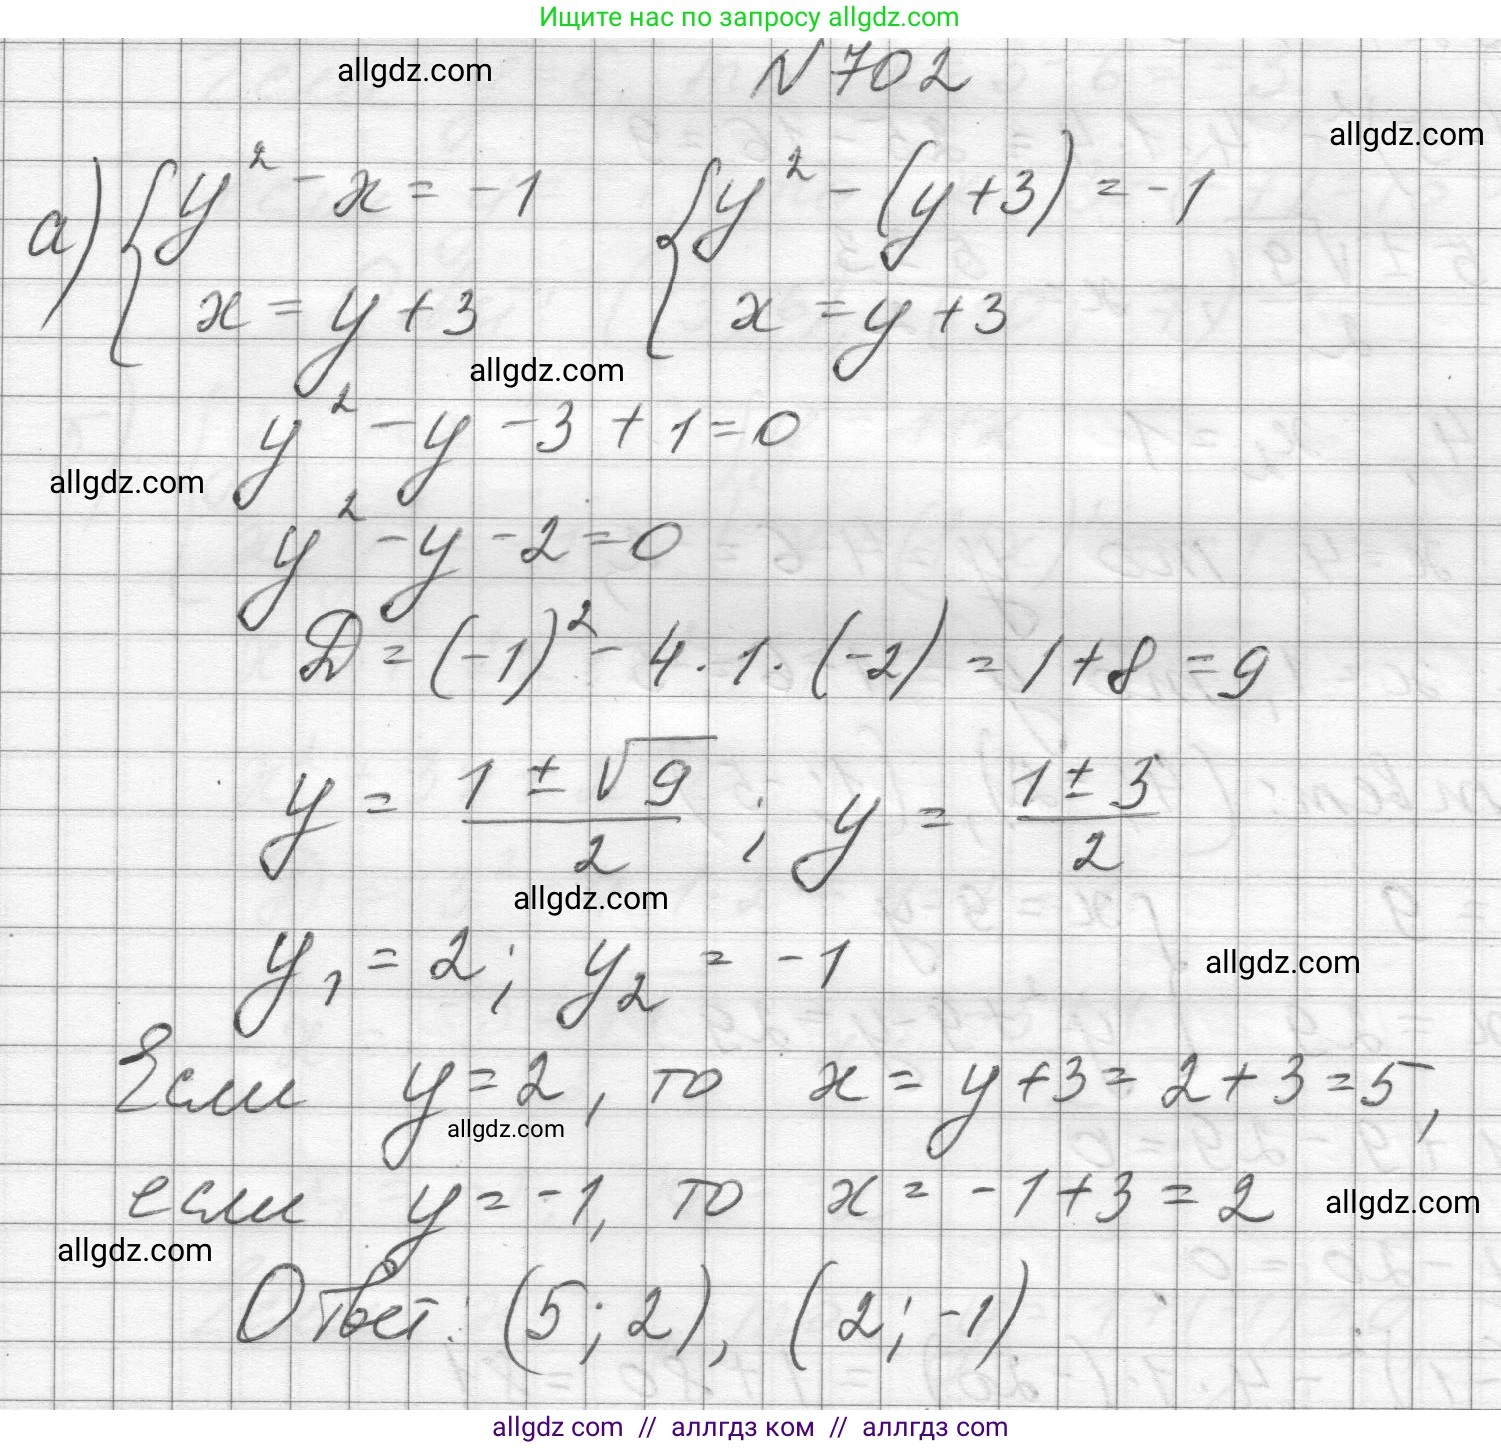 Ищите нас по запросу allgdz.com
allgdz.com
N 702
allgdz.com
а) { y² - x = -1 { y² - (y+3) = -1
x = y + 3 x = y + 3
allgdz.com
y² - y - 3 + 1 = 0
allgdz.com
y² - y - 2 = 0
D = (-1)² - 4 · 1 · (-2) = 1 + 8 = 9
y = (1 ± √9)/2 ; y = (1 ± 3)/2
allgdz.com
y₁ = 2; y₂ = -1
allgdz.com
Если y = 2, то x = y + 3 = 2 + 3 = 5,
allgdz.com
если y = -1, то x = -1 + 3 = 2
allgdz.com
allgdz.com
Ответ: (5; 2), (2; -1)
allgdz.com // аллгдз ком // аллгдз com